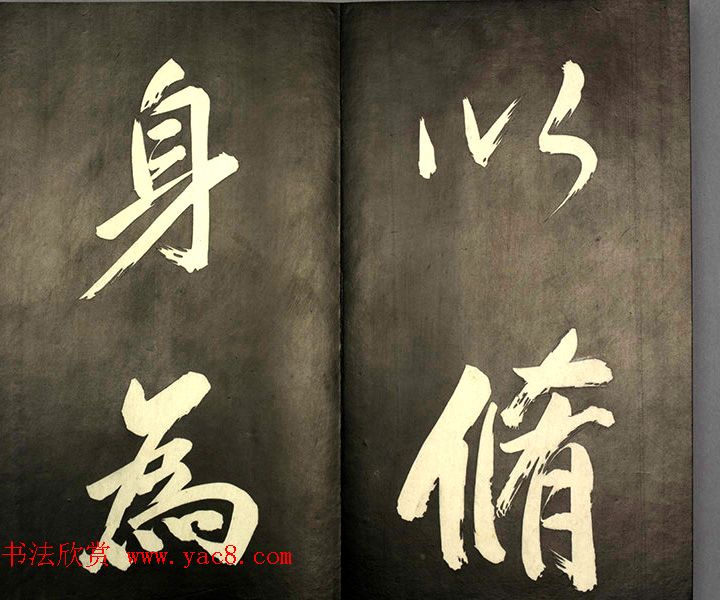 以脩
身為
书法欣赏 www.yac8.com